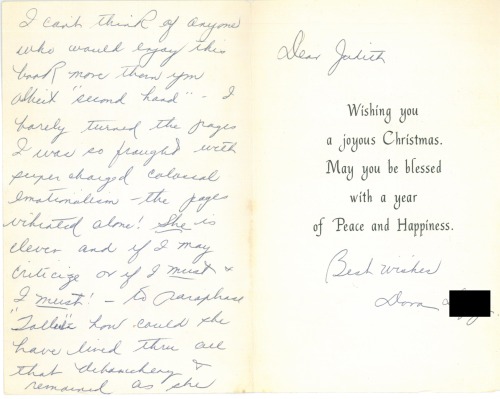 I can't think of anyone
who would enjoy this
book more than you
albeit "second hand" - I
barely turned the pages
I was so fraught with
super charged colossal
emotionalism - the pages
vibrated alone! She is
clever and if I may
criticize or if I must &
I must! - to paraphrase
how could she
have lived thru all
that debauchery &
remained as she
Dear Judith
Wishing you
a joyous Christmas.
May you be blessed
with a year
of Peace and Happiness.
Best wishes
Dora